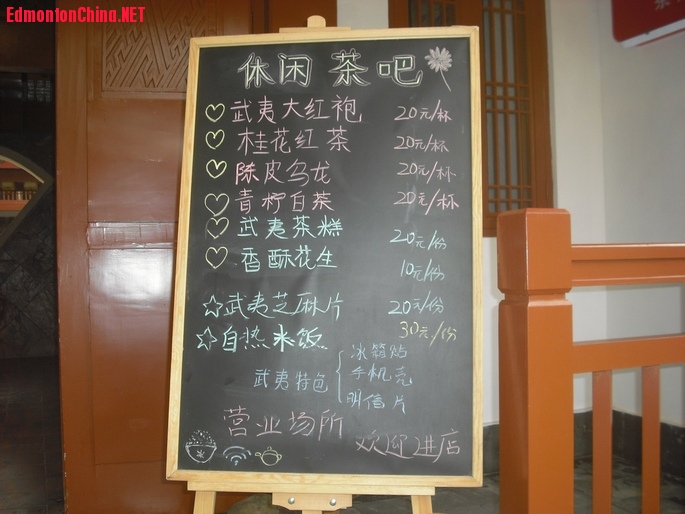 EdmontonChina.NET
休闲茶吧
武夷大红袍 20元/杯
桂花红茶 20元/杯
陈皮乌龙 20元/杯
青柠白茶 20元/杯
武夷茶糕 20元/份
香酥花生 10元/份
武夷芝麻片 20元/份
自热米饭 30元/份
武夷特包
冰箱贴
手机壳
明信片
营业场所
欢迎进店